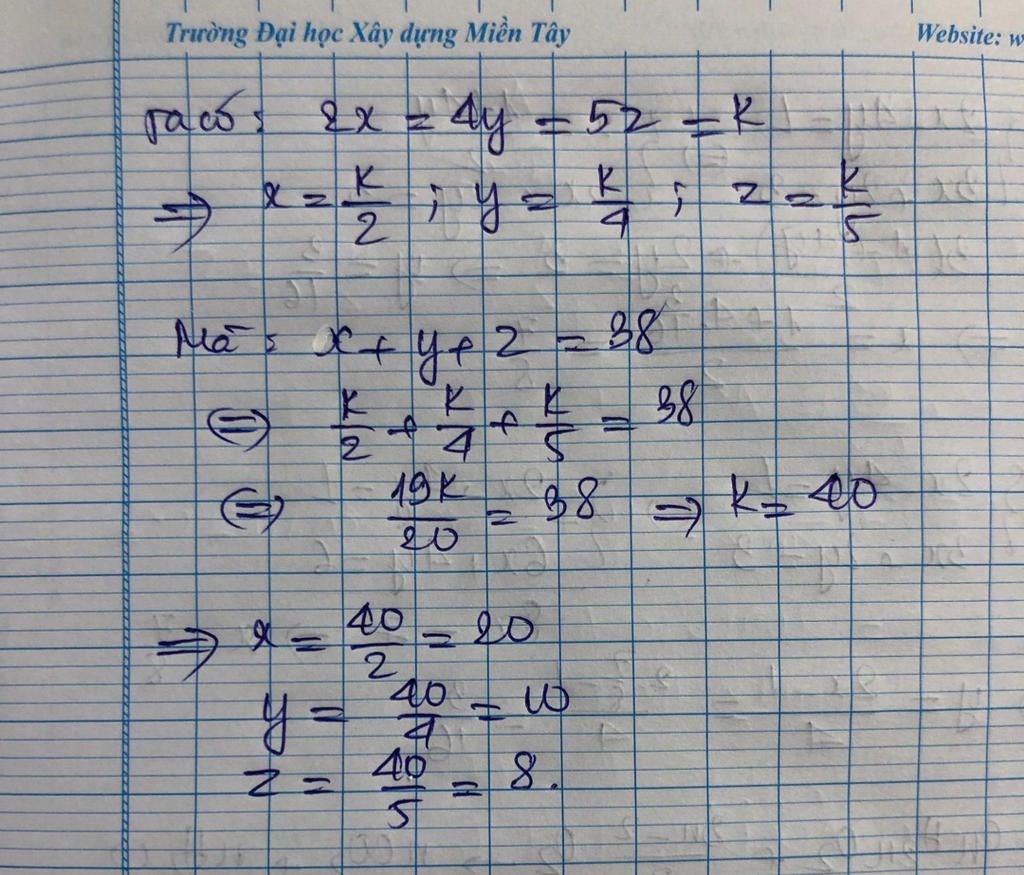 Trường Đại học Xây dựng Miền Tây Website: w
Ta có: 2x = 4y = 5z = K
⇒ x = K/2 ; y = K/4 ; z = K/5
Mà: x + y + z = 38
⇔ K/2 + K/4 + K/5 = 38
⇔ 19K/20 = 38 ⇒ K = 40
⇒ x = 40/2 = 20
y = 40/4 = 10
z = 40/5 = 8.